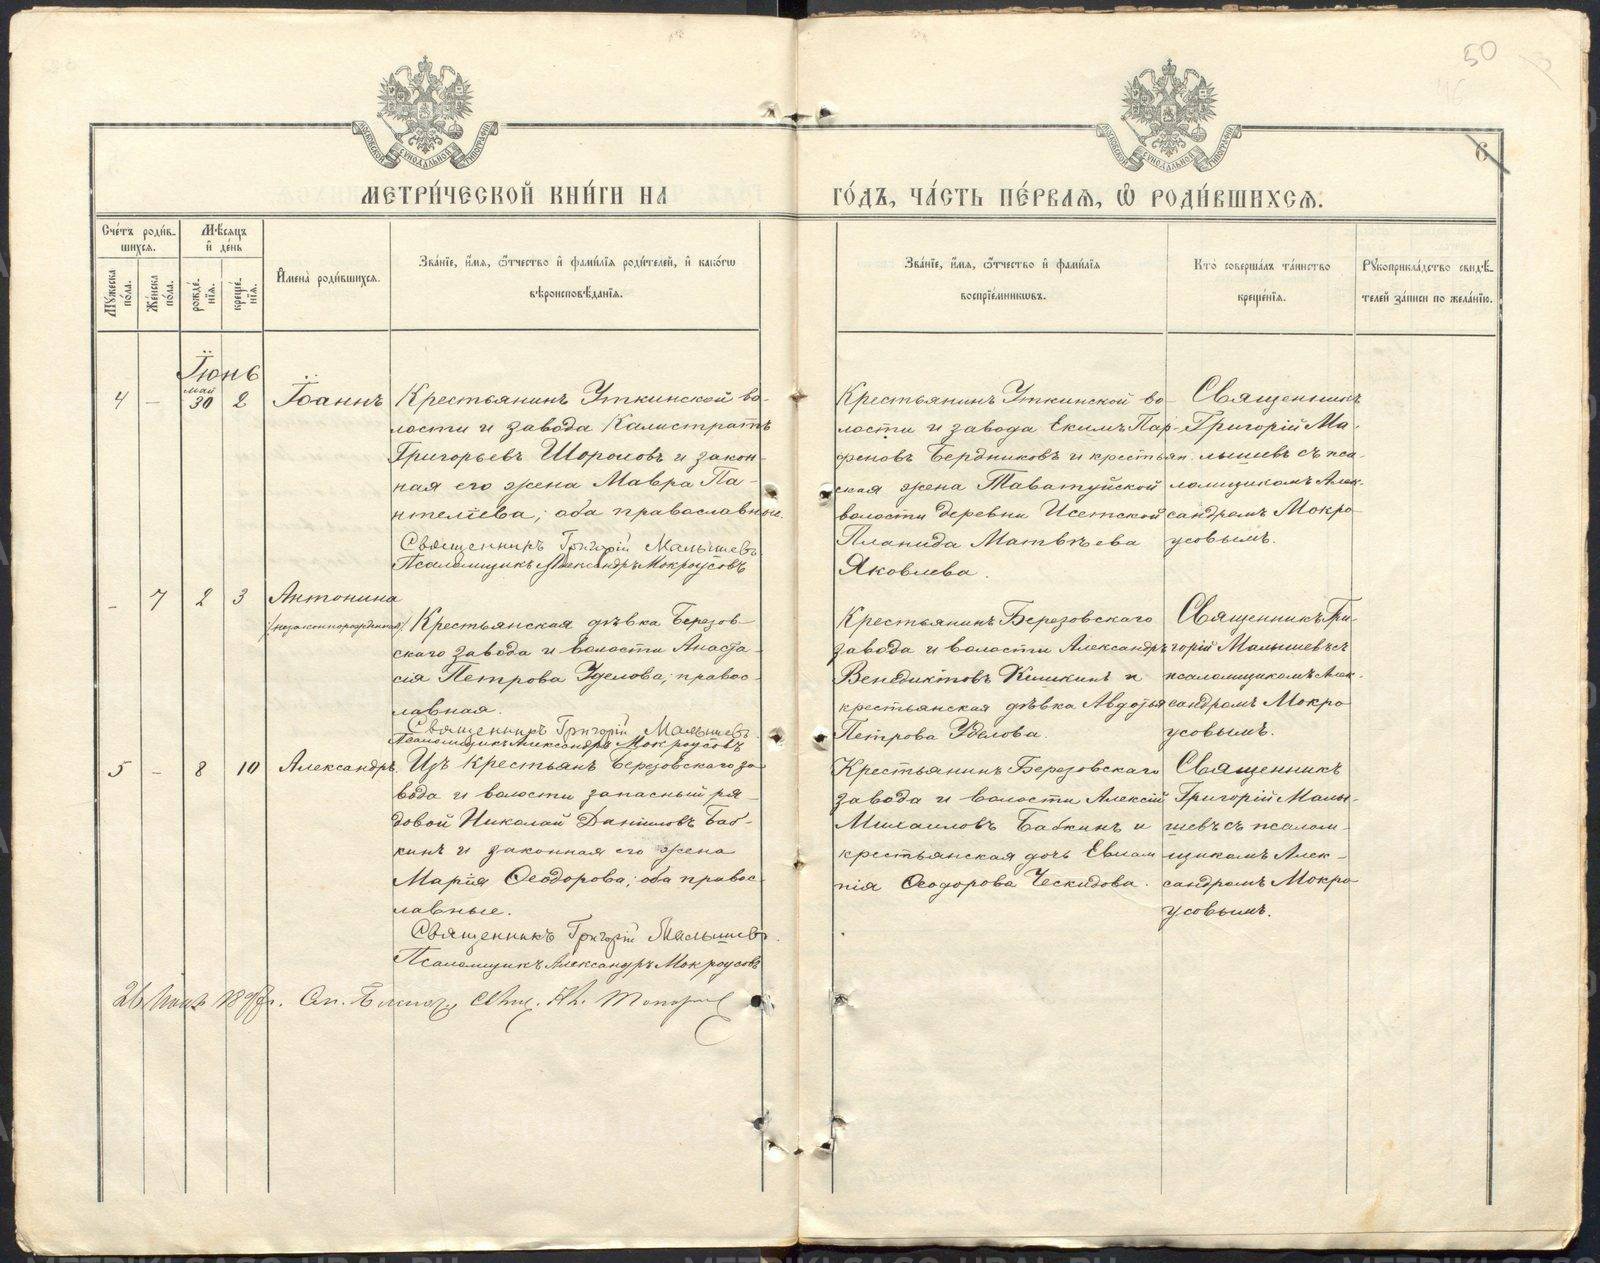 50
6
МОСКОВСКОЙ СѴНОДАЛЬНОЙ ТИПОГРАФІИ
МОСКОВСКОЙ СѴНОДАЛЬНОЙ ТИПОГРАФІИ
МЕТРИ́ЧЕСКОЙ КНИ́ГИ НА
ГО́ДЪ, ЧА́СТЬ ПЕ́РВАѦ, Ѿ РОДИ́ВШИХСѦ.
Сче́тъ роди́в-
шихсѧ.
Мѣ́сѧцъ
и҆ де́нь
Мꙋ́жеска
по́ла.
Же́нска
по́ла.
рожде́-
нїѧ.
креще́-
нїѧ.
И҆мена̀ роди́вшихсѧ.
Зва́нїе, и҆́мѧ, ѻ҆́тчество и҆ фами́лїѧ роди́телей, и҆ како́гѡ
вѣроисповѣ́данїѧ.
Зва́нїе, и҆́мѧ, ѻ҆́тчество и҆ фами́лїѧ
воспрїе́мникѡвъ.
Кто̀ соверша́лъ та́инство
креще́нїѧ.
Рꙋкоприкла́дство свидѣ́-
телей за́писи по жела́нїю.
Іюнь
май
4 — 30 2 Іоаннъ
Крестьянинъ Уткинской во-
лости и завода Калистратъ
Григорьевъ Шороховъ и закон-
ная его жена Мавра Па-
нтелѣева; оба православные.
Священникъ Григорій Малышевъ
Псаломщикъ Александръ Мокроусовъ
Крестьянинъ Уткинской во-
лости и завода Екимъ Пар-
феновъ Бердниковъ и крестьян-
ская жена Таватуйской
волости деревни Исетской
Платида Матвѣева
Яковлева.
Священникъ
Григорій Ма-
лышевъ съ пса-
ломщикомъ Алек-
сандромъ Мокро-
усовымъ.
— 7 2 3 Антонина
(незаконнорожденная)
Крестьянская дѣвка Березов-
скаго завода и волости Анаста-
сія Петрова Уделова; правос-
лавная.
Священникъ Григорій Малышевъ
Псаломщикъ Александръ Мокроусовъ
Крестьянинъ Березовскаго
завода и волости Александръ
Венедиктовъ Кишкинъ и
крестьянская дѣвка Авдотья
Петрова Уделова.
Священникъ Гри-
горій Малышевъ съ
псаломщикомъ Алек-
сандромъ Мокро-
усовымъ.
5 — 8 10 Александръ
Изъ крестьянъ Березовскаго за-
вода и волости запасный ря-
довой Николай Даниловъ Баб-
кинъ и законная его жена
Марія Ѳеодорова; оба правос-
лавные.
Священникъ Григорій Малышевъ.
Псаломщикъ Александръ Мокроусовъ
Крестьянинъ Березовскаго
завода и волости Алексій
Михаиловъ Бабкинъ и
крестьянская дочь Евлам-
пія Ѳеодорова Ческидова.
Священникъ
Григорій Малы-
шевъ съ псалом-
щикомъ Алек-
сандромъ Мокро-
усовымъ.